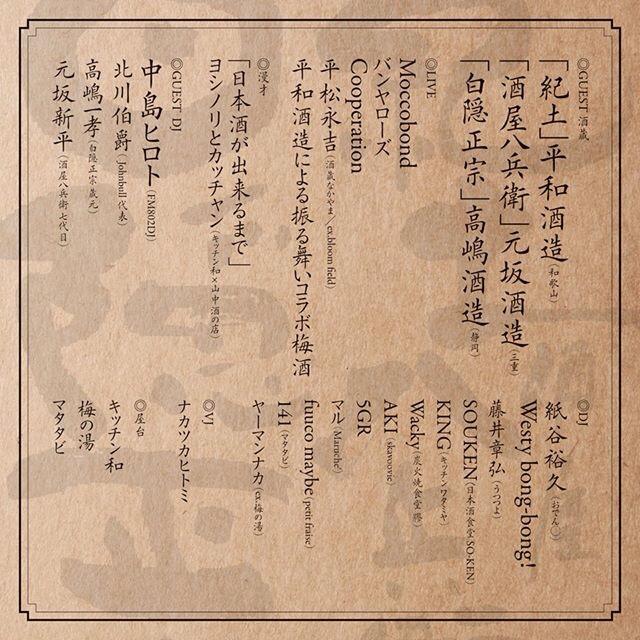 ◎GUEST 酒蔵
「紀土」平和酒造（和歌山）
「酒屋八兵衛」元坂酒造（三重）
「白隠正宗」高嶋酒造（静岡）
◎LIVE
Moccobond
バンヤローズ
Cooperation
平松永吉（酒蔵なかやま／ex.bloom field）
平和酒造による振る舞いコラボ梅酒
◎漫才
「日本酒が出来るまで」
ヨシノリとカッチャン（キッチン和×山中酒の店）
◎GUEST DJ
中島ヒロト（FM802DJ）
北川伯爵（Johnbull 代表）
高嶋一孝（白隠正宗 蔵元）
元坂新平（酒屋八兵衛 七代目）
◎DJ
紙谷裕久（おでん◯）
Westy bong-bong!
藤井章弘（うつつよ）
SOUKEN（日本酒食堂SO-KEN）
KING（キッチンワタミヤ）
Wacky（炭火焼食堂 膠）
AKI（skavoovie）
5GR
マル（Maruche）
fuuco maybe（petit fraise）
141（マタタビ）
ヤーマンナカ（ex.梅の湯）
◎VJ
ナカツカヒトミ
◎屋台
キッチン和
梅の湯
マタタビ